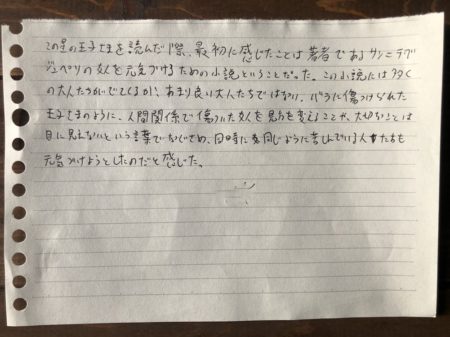 この星の王子さまを読んだ際、最初に感じたことは著者であるサン=テグ
ジュペリの友人を元気づけるための小説ということだった。この小説には多く
の大人たちがでてくるが、あまり良い大人たちではない。バラに傷つけられた
王子さまのように、人間関係で傷ついた友人を見方を変えることや、大切なことは
目に見えないという言葉でなぐさめ、同時に同じように苦しんでいる人たちも
元気づけようとしたのだと感じた。